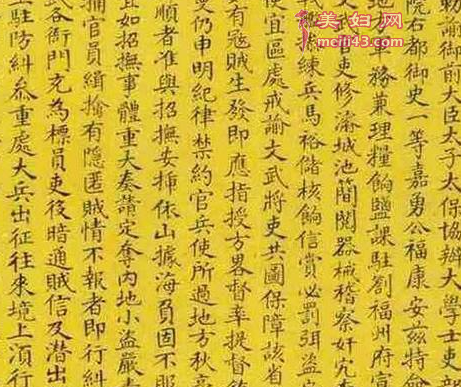 勅諭御前大臣太子太保協辦大學士吏部
院右都御史一等嘉勇公福康安茲特命
地方軍務兼理糧餉鹽課駐劄福州府官
文武事吏修濬城池簡閱器械稽察奸宄
練兵馬裕儲核餉信賞必罰弭盜
便宜區處戒諭文武將吏共圖保障該省
有寇賊生發即應指授方畧督率提督
仍申明紀律禁約官兵使所過地方秋毫
順者准與招撫安揷依山據海負固不服
且如招撫事體重大奏請定奪內地小盜嚴
捕官員緝擒有隱匿賊情不報者即行糾
各衙門充為標員吏役暗通賊信及潛出
駐防糾叅重處大兵出征往來境上湏行
美妇网
meiti43.com